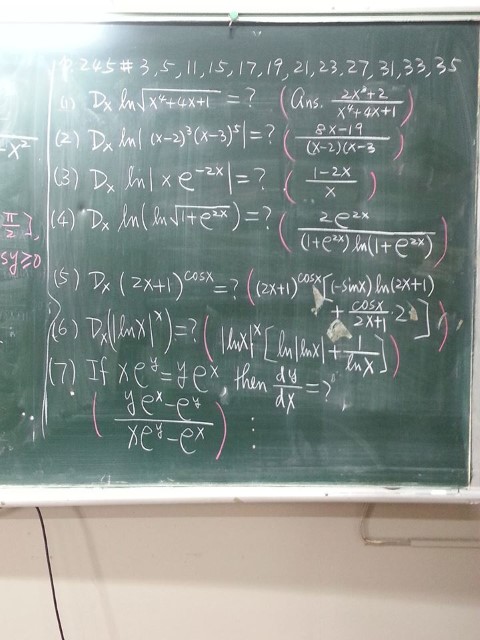 P. 245 # 3, 5, 11, 15, 17, 19, 21, 23, 27, 31, 33, 35
(1) Dx ln√(x⁴+4x+1) = ? (Ans. (2x³+2)/(x⁴+4x+1))
(2) Dx ln|(x-2)³(x-3)⁵| = ? ((8x-19)/(x-2)(x-3)
(3) Dx ln|x e^(-2x)| = ? ((1-2x)/x)
(4) Dx ln(ln√(1+e^(2x))) = ? (2e^(2x)/((1+e^(2x)) ln(1+e^(2x))))
(5) Dx (2x+1)^cosx = ? ((2x+1)^cosx [(-sinx) ln(2x+1)
+ cosx/(2x+1) · 2])
(6) Dx(|lnx|^x) = ? (|lnx|^x [ln|lnx| + 1/lnx])
(7) If xe^y = ye^x, then dy/dx = ?
((ye^x - e^y)/(xe^y - e^x)) ⋮
-x²
π/2],
sy ≥ 0